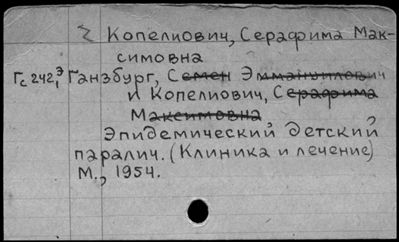 2 Копелиович, Серафима Мак-
симовна
Гс242,Э Ганзбург, Семен Эммануилович
и Копелиович, Серафима
Максимовна
Эпидемический детский
паралич. (Клиника и лечение)
М., 1954.